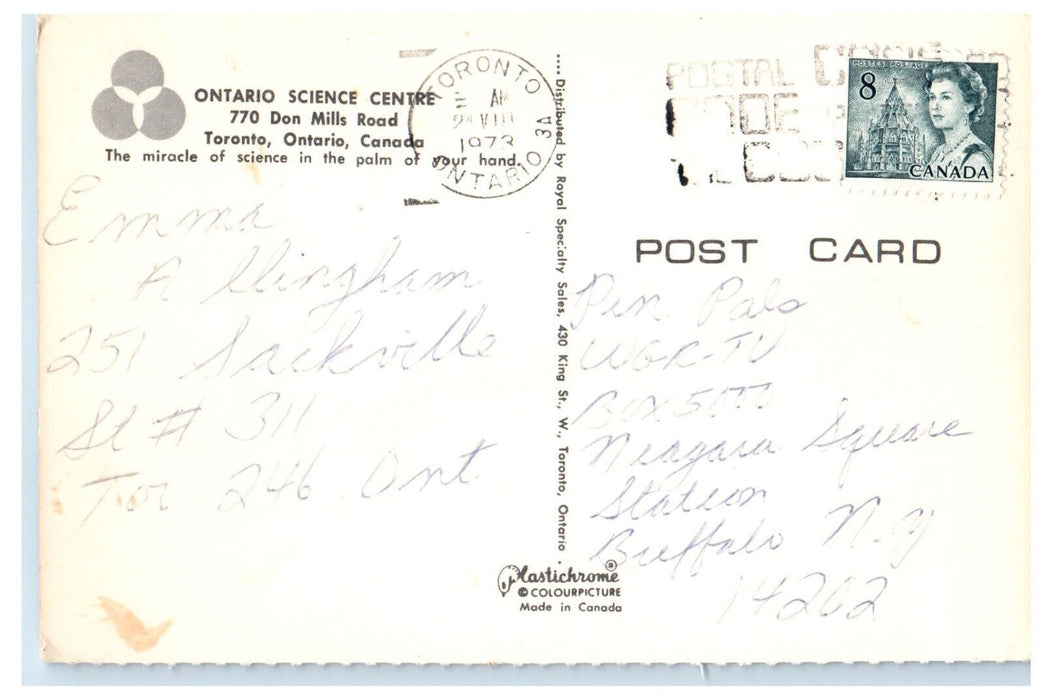 ONTARIO SCIENCE CENTRE
770 Don Mills Road
Toronto, Ontario, Canada
The miracle of science in the palm of your hand.
TORONTO
AM
24 VIII
1973
ONTARIO
3A
POSTAL
CODE
POSTES POSTAGE
8
CANADA
Emma
Allingham
251 Sackville
St # 311
Tor 246 Ont
.... Distributed by Royal Specialty Sales, 430 King St., W., Toronto, Ontario .
POST CARD
Pen Pals
WGR-TV
Box 5000
Niagara Square
Station
Buffalo N.Y
14202
Plastichrome®
© COLOURPICTURE
Made in Canada